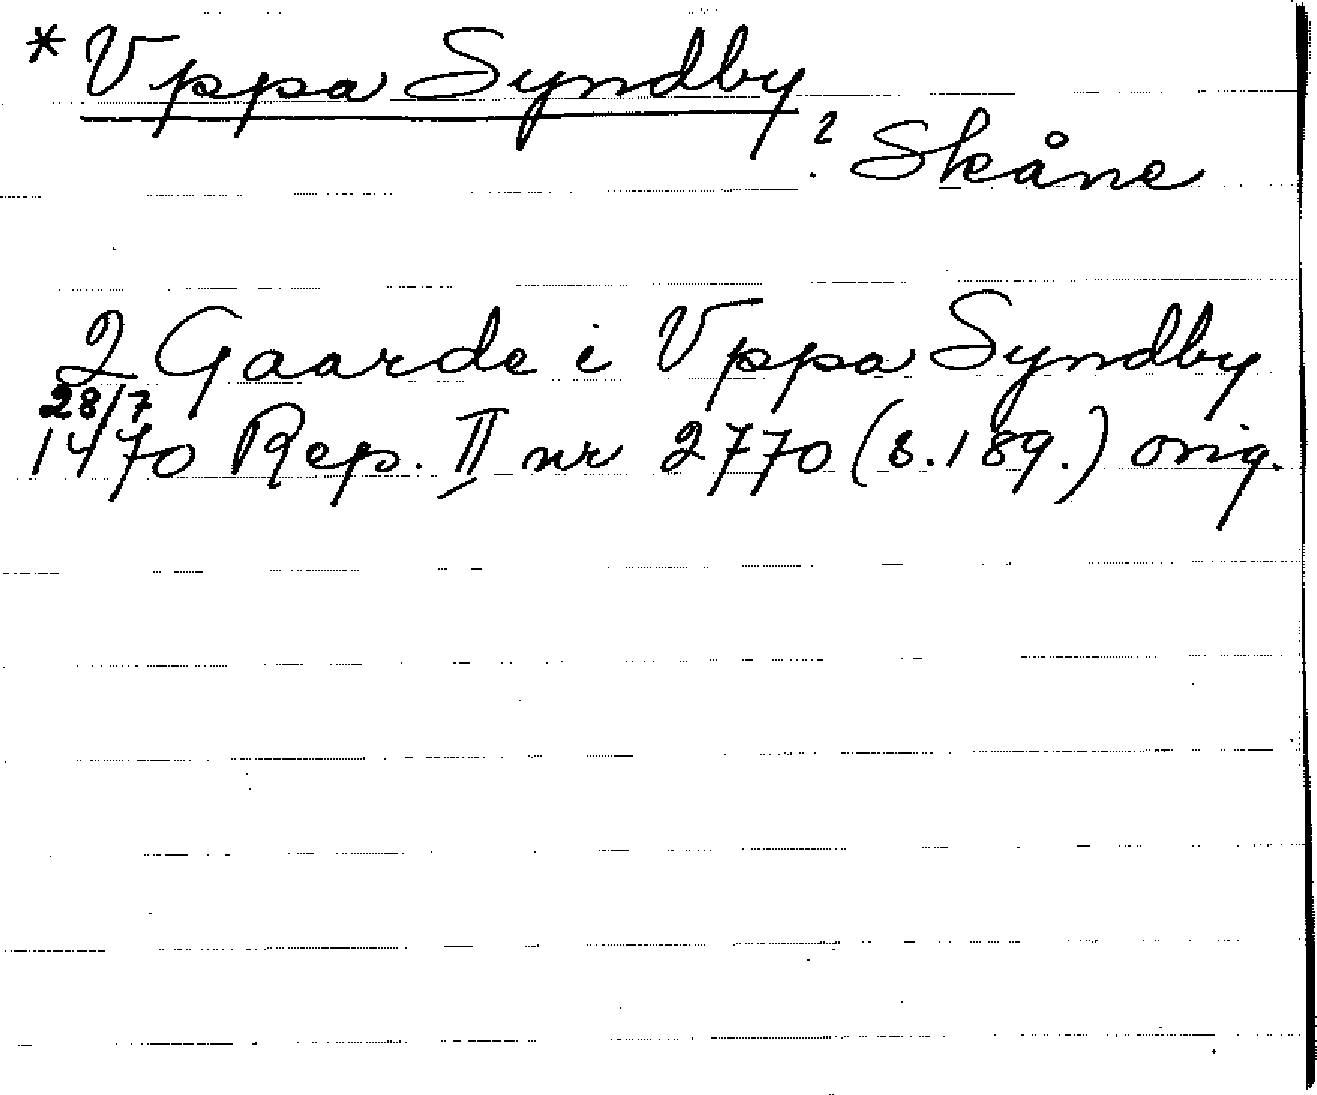 * Vppa Syndby
? Skåne
2 Gaarde i Vppa Syndby
28/7
1470 Rep. II nr 2770 (s. 189.) orig.